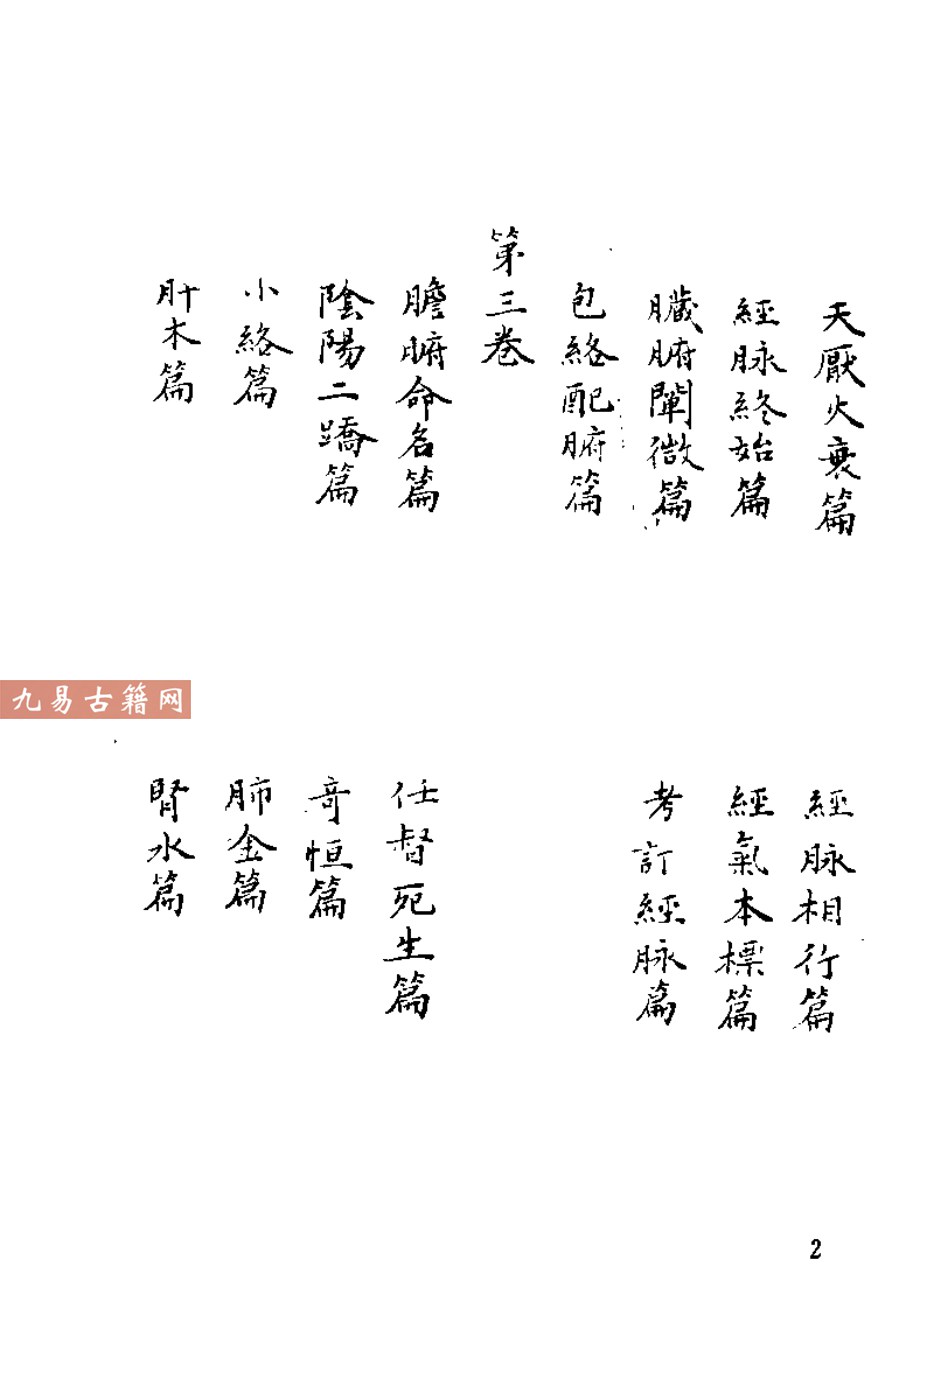 天厭火衰篇
經脉相行篇
經脉終始篇
經氣本標篇
臟腑闡微篇
考訂經脉篇
包絡配腑篇
第三卷
膽腑命名篇
任督死生篇
陰陽二蹻篇
奇恒篇
小絡篇
肺金篇
肝木篇
腎水篇
九易古籍网
2